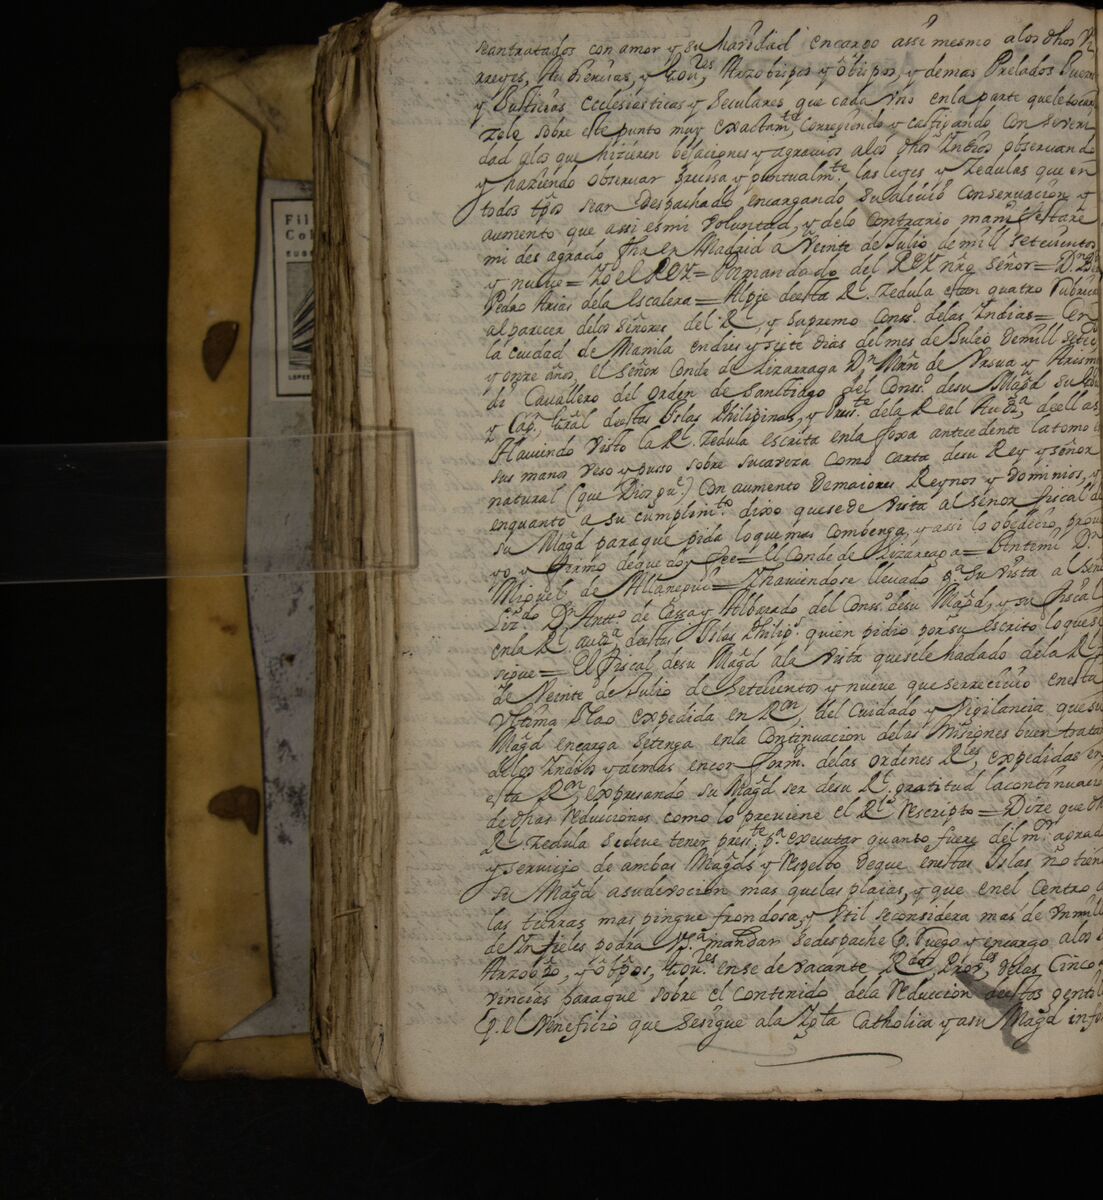 seantratados con amor y su haridad encargo assi mesmo alos dhos Vi
rreyes, Audiencias, y Gou.res Arzobispos y obispos, y demas Prelados Juezes
y Justicias ecclesiasticas y seculares que cada vno enla parte quele tocare
zele sobre este punto muy exactam.te corregiendo y castigando con severi
dad alos que hizieren besaciones y agravios alos dhos Indios observando
y haziendo observar precissa y puntualm.te las leyes y Zedulas que en
todos tpõs sean despachado, encargando su alivio conservacion y
aumento que assi es mi voluntad, y delo contrario manifestare
mi des agrado fha en Madrid a Veinte de Julio de mill setecientos
y nueve = Yo el REY = Pormandado del REY nrõ señor = D.n
Pedro Arias dela Escalera = Alpie deesta R.l Zedula estan quatro rubricas
alparecer delos señores del R.l y supremo Cons.o delas Indias = En
la ciudad de Manila endies y siete dias del mes de Julio demill setec
y onze años, el señor Conde de Lizarraga D.n Mrñ de Vrsua y Arism
di Cavallero del orden de Santtiago del Cons.o desu Magd su
y Cap.n Gräl deestas Islas Philipinas, y Press.te dela Real Aud.a deellas
Haviendo Visto la R.l Zedula escrita enla foxa antecedente latomo en
sus manos veso y puso sobre sucaveza como carta desu Rey y señor
natural (que Dios gu.e) con aumento demaiores Reynos y dominios, y
enquanto a su cumplim.to dixo quesede vista al señor fiscal de
su Magd paraque pida loque mas combenga, y assi lo obedecio, prove
yo y firmo deque doy fee = el Conde de Lizarraga = Antemi D.n
Miguel de Allanegui = Yhaviendose llevado p.a su vista a señ
Liz.do D.n Antt.o de Cassa y Albarado del Cons.o desu Magd, y su fiscal
enla R.l aud.a deestas Islas Philip.s quien pidio por su escrito loquese
sigue = El fiscal desu Magd ala vista quesele hadado dela R.l
Ze Veinte de Julio de Setecientos y nueve que serrecivio enesta
vltima Nao expedida en R.on del Cuidado y Vigilancia que su
Magd encarga setenga enla Continuacion delas Missiones buen trata
delos Indios y demas encor form.d delas ordenes R.les expedidas en
esta R.on expresando su Magd ser desu R.l gratitud lacontinuacion
de dhas reducciones como lo previene el R.l rescripto = Dize que dha
R.l Zedula sedeve tener pres.te p.a executar quanto fuere del m.or agrado
y servicio de ambas Magds y respecto deque enestas Islas no tiene
su Magd asudevocion mas quelas plaias, y que enel centro de
las tierras mas pingue frondosa, y vtil seconsidera mas de vnmill
de Infieles podra V.s.a mandar sedespache p. ruego y encargo alos
Arzobpõ, y obpõs, Gou.res ense de vacante R.dos Prov.les delas Cinco
vincias paraque sobre el contenido dela reduccion deestos gentil
p. el veneficio que sesigue ala Ygta Catholica y asu Magd infor